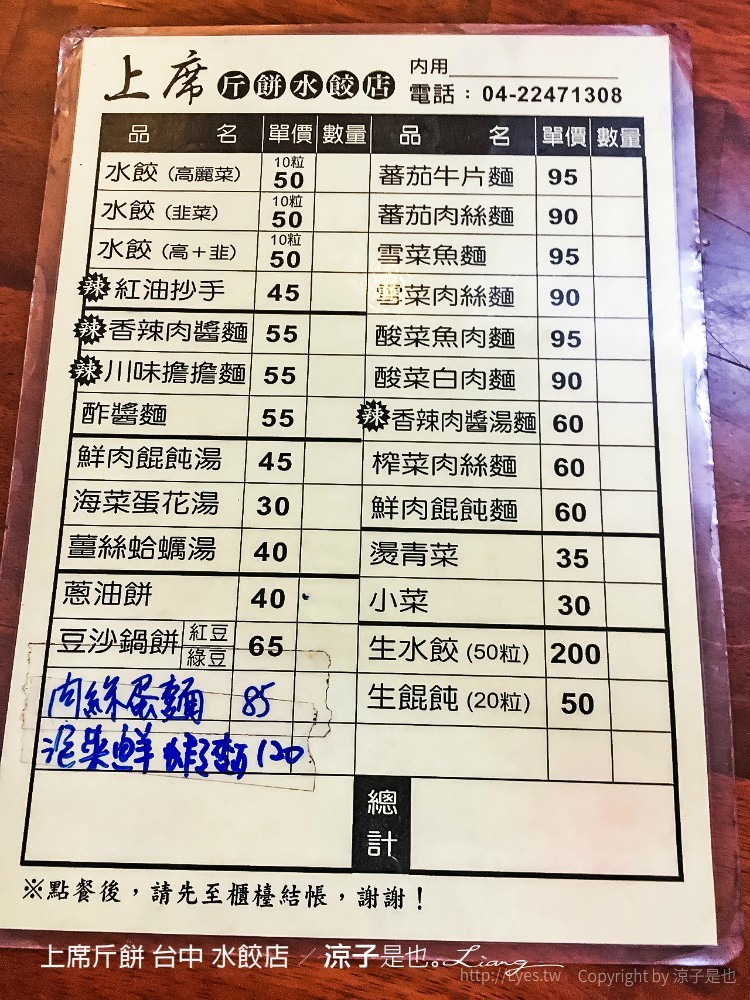 上席 斤餅水餃店
內用
電話：04-22471308
品名 單價 數量 品名 單價 數量
水餃（高麗菜） 10粒 50 蕃茄牛片麵 95
水餃（韭菜） 10粒 50 蕃茄肉絲麵 90
水餃（高＋韭） 10粒 50 雪菜魚麵 95
辣 紅油抄手 45 雪菜肉絲麵 90
辣 香辣肉醬麵 55 酸菜魚肉麵 95
辣 川味擔擔麵 55 酸菜白肉麵 90
酢醬麵 55 辣 香辣肉醬湯麵 60
鮮肉餛飩湯 45 榨菜肉絲麵 60
海菜蛋花湯 30 鮮肉餛飩麵 60
薑絲蛤蠣湯 40 燙青菜 35
蔥油餅 40 小菜 30
豆沙鍋餅 紅豆 綠豆 65 生水餃 (50粒) 200
肉絲蛋麵 85 生餛飩 (20粒) 50
泡菜鮮 麵 120
總計
※點餐後，請先至櫃檯結帳，謝謝！
上席斤餅 台中 水餃店 ／ 涼子是也。Liang
http://Lyes.tw Copyright by 涼子是也